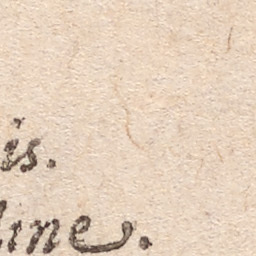 is.
line.